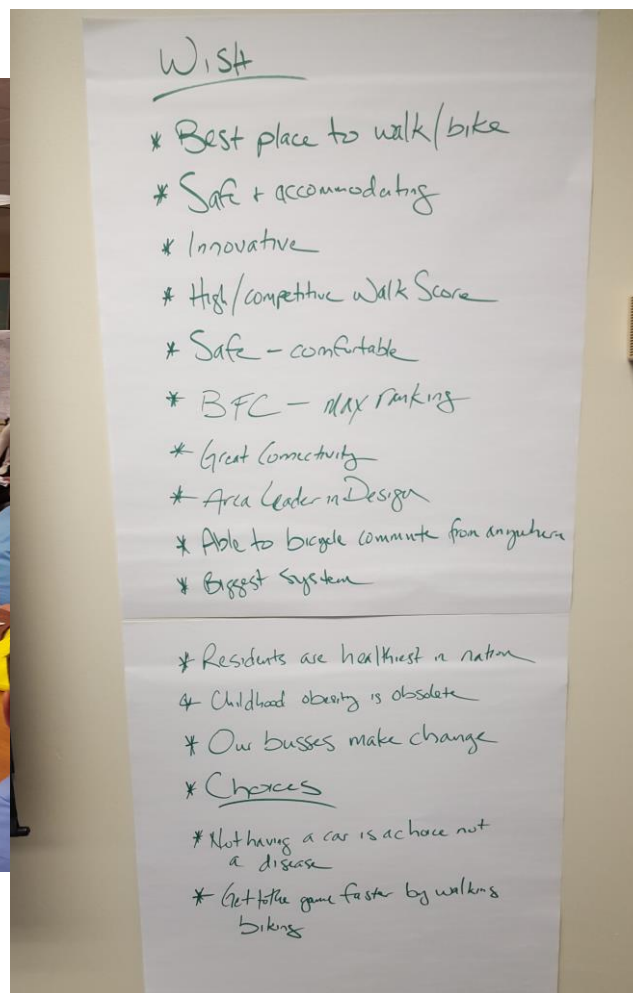 Wish
* Best place to walk/bike
* Safe + accommodating
* Innovative
* High/competitive Walk Score
* Safe - comfortable
* BFC - max ranking
* Great Connectivity
* Area Leader in Design
* Able to bicycle commute from anywhere
* Biggest System
* Residents are healthiest in nation
* Childhood obesity is obsolete
* Our busses make change
* Choices
* Not having a car is a choice not
a disease
* Get to the game faster by walking
biking